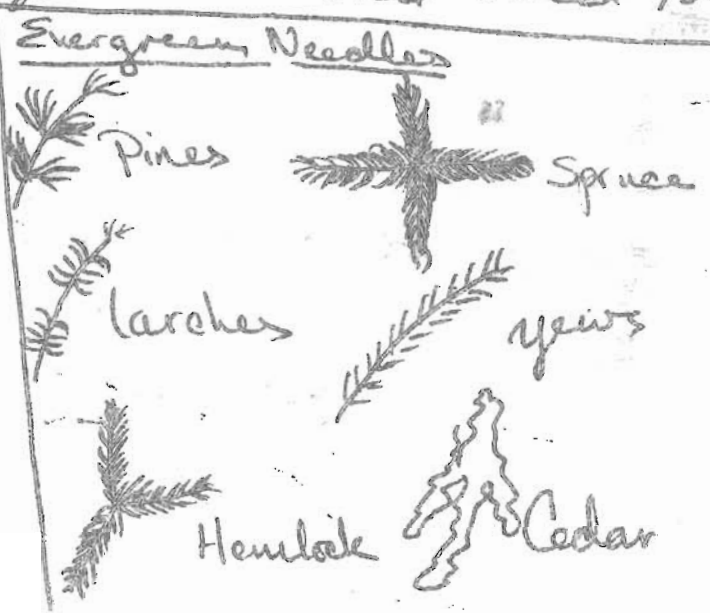 Evergreen Needles
Pines
Spruce
larches
yews
Hemlock
Cedar